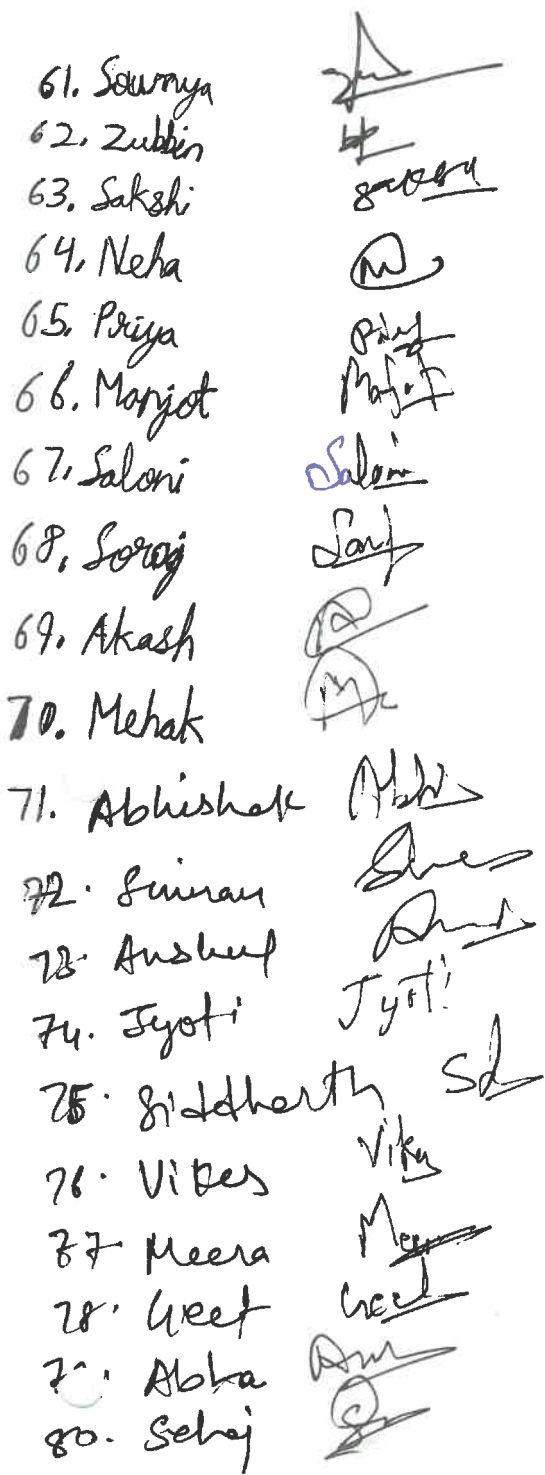 61. Soumya
62. Zubbin
63. Sakshi
64. Neha
65. Priya
66. Manjot Manjot
67. Saloni Saloni
68. Soraj
69. Akash
70. Mehak
71. Abhishek Abhi
72. Simran
73. Anshul
74. Jyoti Jyoti
75. Siddharth Sd
76. Vikas Vikas
77 Meera
78. Geet Geet
Abha
80. Sehaj